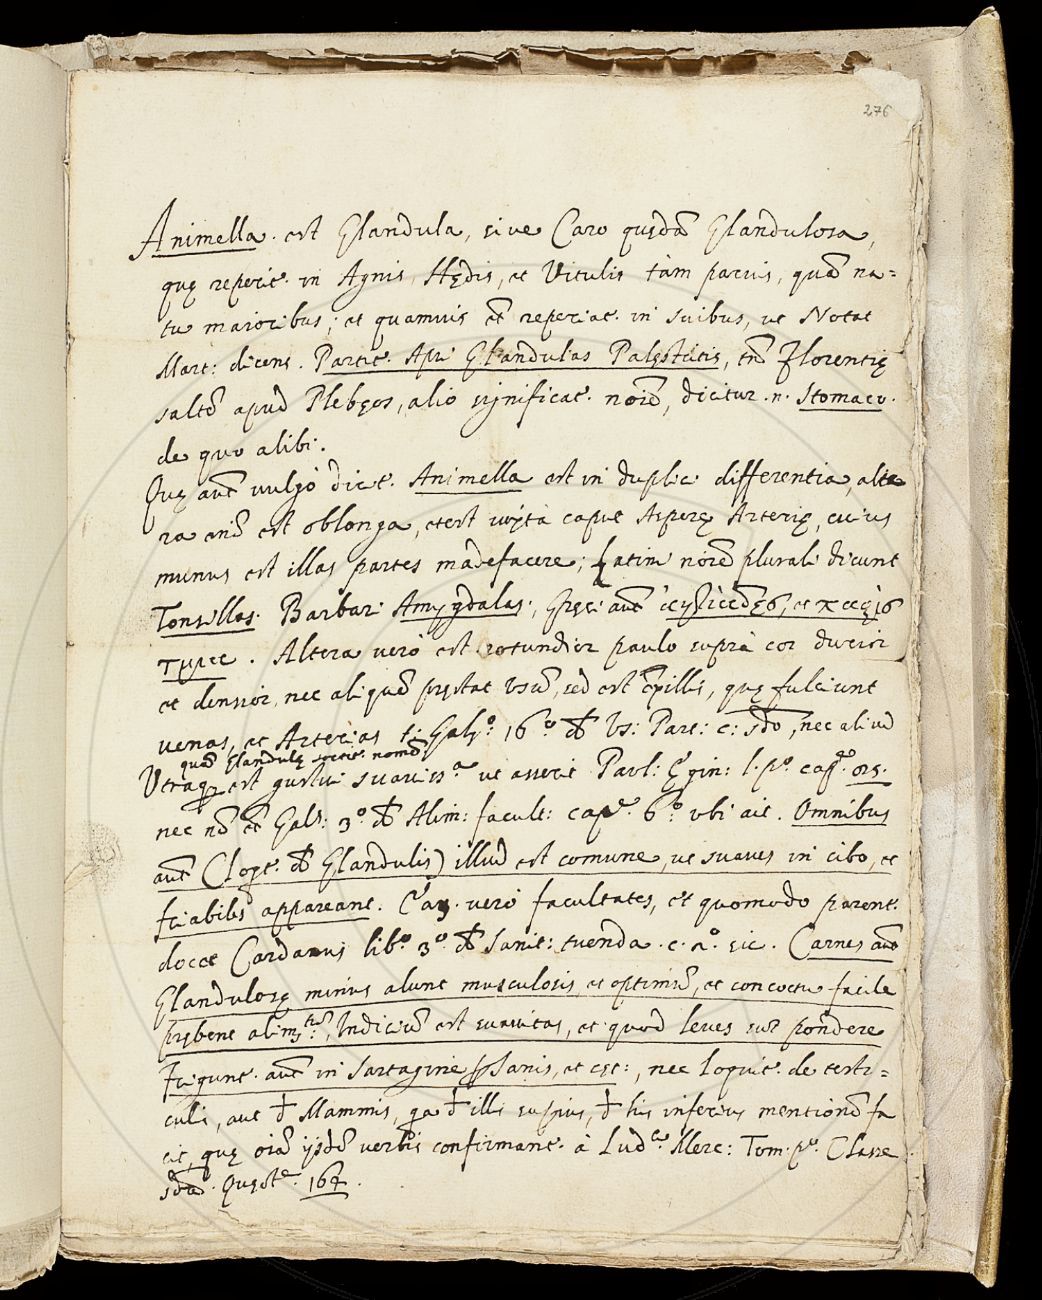 276
Animella. est Glandula, siue Caro quędā Glandulosa,
quę reperit. in Agnis, Hędis, et Vitulis tàm paruis, quā na=
tu maioribus; et quamuis et̄ reperiat. in suibus, ut Notat
Mart: dicens. Partit. Apri Glandulas Palęstitis, tn̄ Florentię
saltē apud Plebęos, alio significat. noīe, dicitur .n. Stomaco.
de quo alibi.
Quę aut̄ uulgò dicit. Animella est in duplici differentia, alte
ra enī est oblonga, et est iuxtà caput Asperę Arterię, cuius
munus est illas partes madefacere; Latini noīe plurali dicunt
Tonsillas. Barbari Amygdalas, Gręci aut̄
. Altera uerò est rotundior paulo suprà cor durior
et densior, nec aliquē pręstat usum, sed est ex illis, quę fulciunt
uenas, et Arterias t: Galº. 16º de Us: Part: c: sdo, nec aliud
quam Glandulę sortit. nomē
Utraq; est gustui suauissª ut asserit Paul: Ęgin: l. pº. capº. 
nec nō et̄ Galº: 3º de Alim: facult: capº. 6º. ubi ait. Omnibus
aut̄ (loqt. de Glandulis) illud est comune, ut suaues in cibo, et
friabiles appareant. Eaꝝ. uerò facultates, et quomodo parent.
docet Cardanus libº. 3º. de Sanit: tuenda. c. sic. Carnes aut̄
Glandulosę minùs alunt musculosis, et optimū, et concoctu facile
prębent alim:tum, Indiciū est suauitas, et quod leues sut pondere
Frigunt. aut̄ in Sartagine pro Sanis, et cęt:, nec loquit. de testi=
culis, aut de Mammis, qa de illis supius, de his inferius mentionē fa
cit, quę oīa ijsdē uerbis confirmant. à Ludco Merc: Tom. pº. Classe
sdā. Quęste. 167.